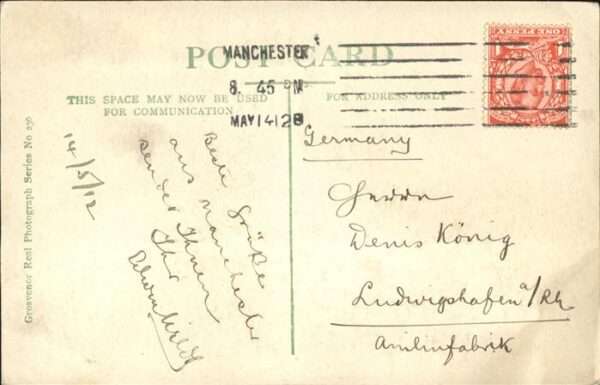 POST CARD
MANCHESTER
8. 45 PM
MAY 14 12
THIS SPACE MAY NOW BE USED
FOR COMMUNICATION.
FOR ADDRESS ONLY
ONE PENNY
Grosvenor Real Photograph Series No 230
14/5/12
Beste Grüße
aus Manchester
sendet Ihnen
Ihr
Germany
Herrn
Denis König
Ludwigshafen a/Rh
Anilinfabrik